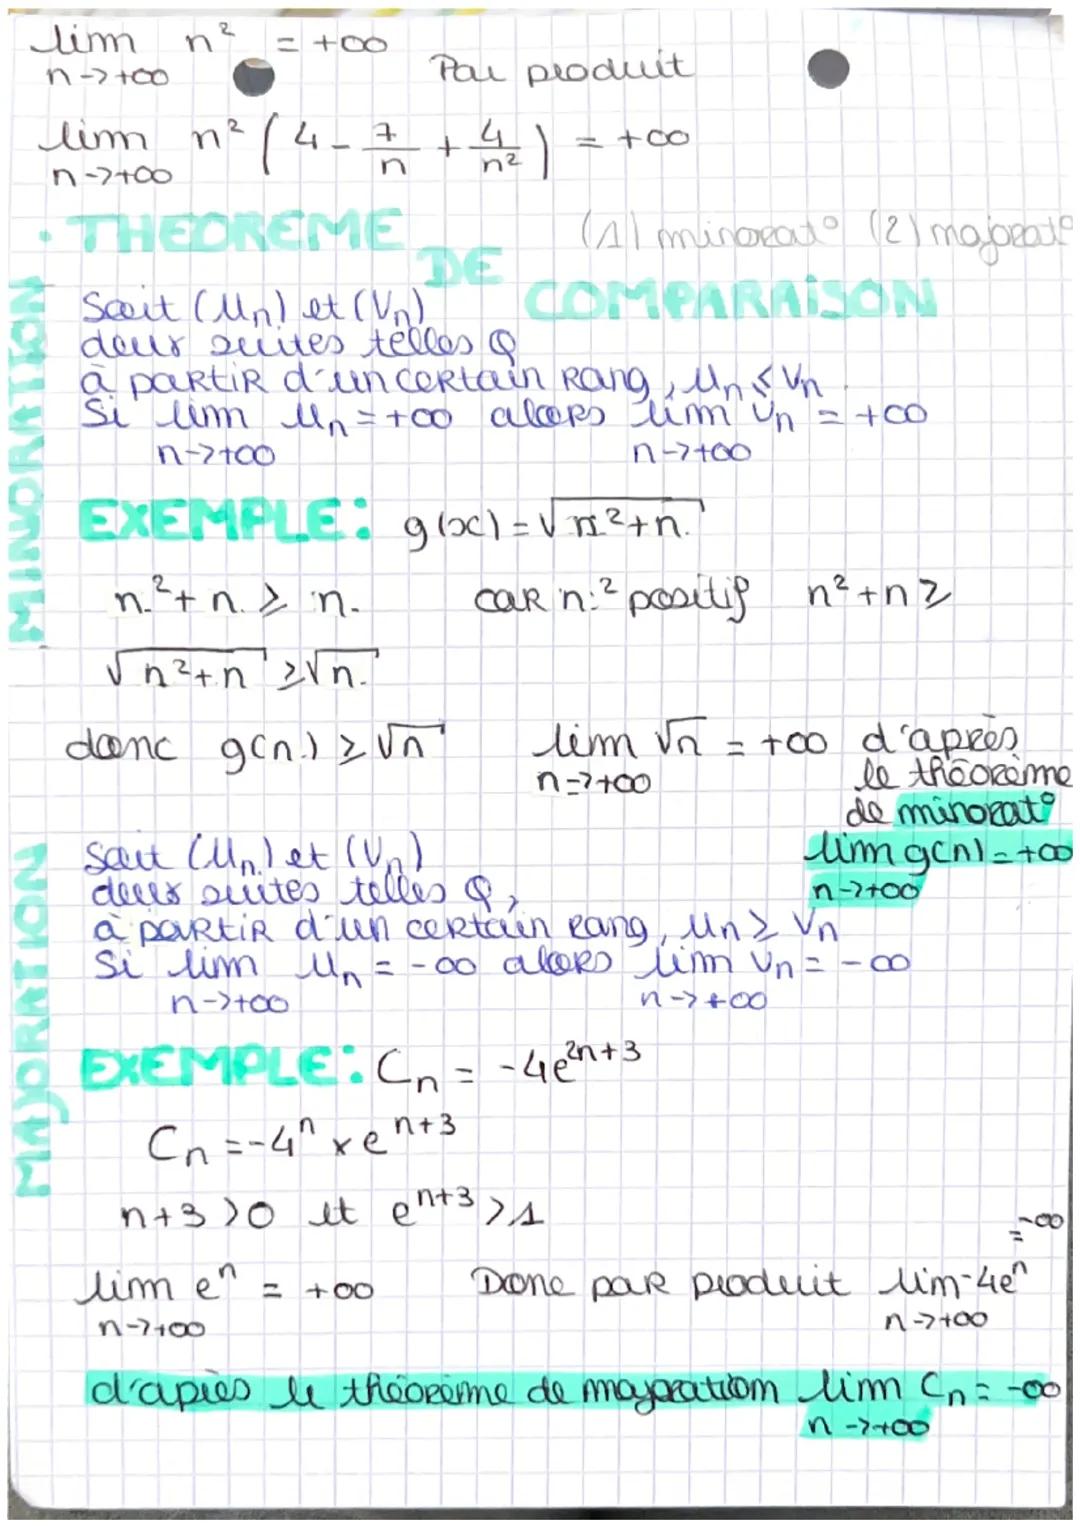 lim n² = +∞
n->+∞
Par produit
lim n² (4 - 7/n + 4/n²) = +∞
n->+∞
• THEOREME DE COMPARAISON
(1) minorat° (2) majorat°
MINORATION
Soit (Un) et (Vn)
deux suites telles Q
à partir d'un certain rang, Un ≤ Vn.
Si lim Un = +∞ alors lim Vn = +∞
n->+∞ n->+∞
EXEMPLE: g(x) = √n²+n
n²+n ≥ n. car n² positif n²+n ≥
√n²+n ≥ √n
donc g(n) ≥ √n lim √n = +∞ d'après
n->+∞ le théorème
de minorat°
lim g(n) = +∞
n->+∞
MAJORATION
Soit (Un) et (Vn)
deux suites telles Q,
à partir d'un certain rang, Un ≥ Vn
Si lim Un = -∞ alors lim Vn = -∞
n->+∞ n->+∞
EXEMPLE: Cn = -4e^{2n+3}
Cn = -4^n × e^{n+3}
n+3 > 0 et e^{n+3} > 1
lim e^n = +∞ Donc par produit lim -4e^n = -∞
n->+∞ n->+∞
d'après le théorème de majoration lim Cn = -∞
n->+∞